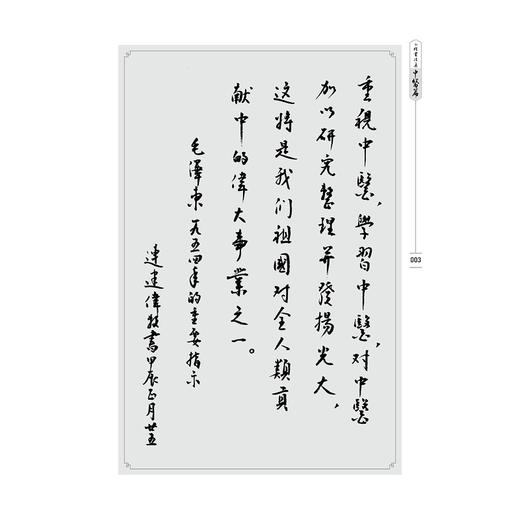 重視中醫，學習中醫，對中醫
加以研究整理并發揚光大，
这将是我们祖國对全人類貢
献中的偉大事業之一。
毛澤東一九五四年的重要指示
連建偉敬書甲辰正月廿五
中醫篇
003